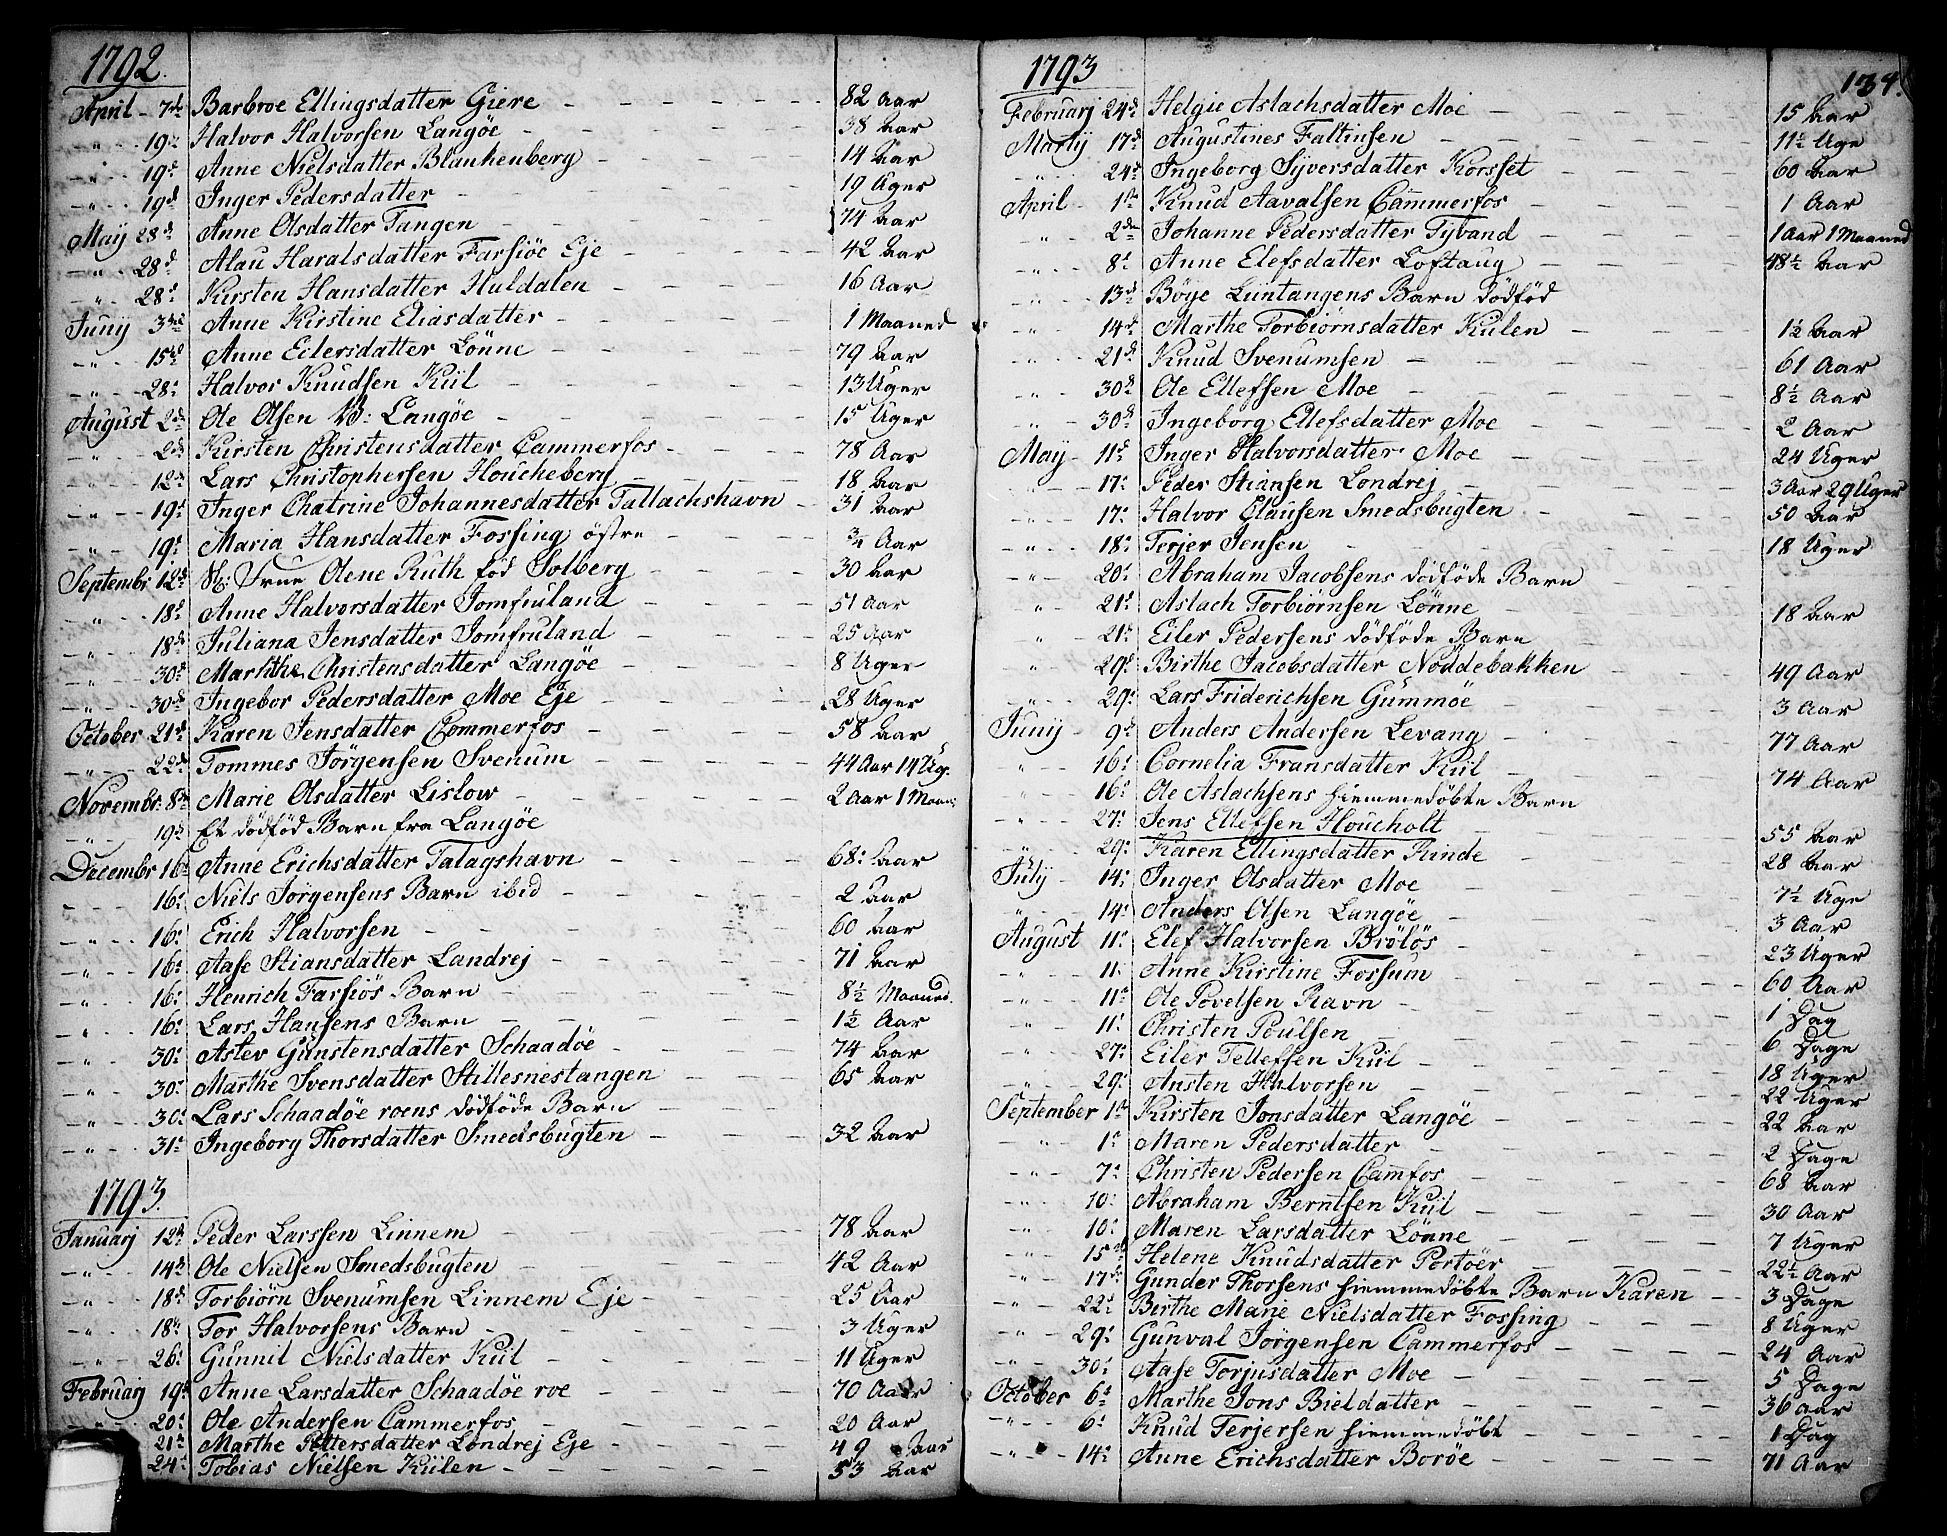 1792.
April - 7de Barbroe Ellingsdatter Giere 82 Aar
19de Halvor Halvorsen Langöe 38 Aar
19de Anne Nielsdatter Blankenberg 14 Aar
19de Inger Pedersdatter 19 Uger
May 28de Anne Olsdatter Tangen 74 Aar
28de Alau Haralsdatter Farsiöe Eje 42 Aar
28de Kirsten Hansdatter Huldalen 16 Aar
Juny 3de Anne Kirstine Eliasdatter 1 Maaned
15de Anne Eilersdatter Lönne 79 Aar
28de Halvor Knudsen Kiil 13 Uger
August 2de Ole Olsen V: Langöe 15 Uger
2de Kirsten Christensdatter Cammerfos 78 Aar
12de Lars Christophersen Houcheberg 18 Aar
19de Inger Chatrine Johannesdatter Tallachshavn 31 Aar
19de Maria Hansdatter Fossing östre ¾ Aar
Septembr 12de Sl: Frue Olene Ruth föd Solberg 30 Aar
18de Anne Halvorsdatter Jomfruland 51 Aar
18de Juliana Jensdatter Jomfruland 25 Aar
30de Marhthe Christensdatter Langöe 8 Uger
30de Ingebor Pedersdatter Moe Eje 28 Uger
October 21de Karen Jensdatter Commerfos 58 Aar
22de Tommes Jörgensen Svenum 44 Aar 14 Ug:
Novembr. 8de Marie Olsdatter Lislow 2 Aar 1 Maan:
19de Et dödföd Barn fra Langöe
Decembr 16de Anne Erichsdatter Talagshavn 68: Aar
16: Niels Jörgensens Barn ibid 2 Aar
16: Erich Halvorsen 60 Aar
16: Aase Stiansdatter Landrej 71 Aar
16: Henrich Farsiös Barn 8½ Maaned.
16: Lars Hansens Barn 1½ Aar
30: Aslev Gunstensdatter Schaadöe 74 Aar
30: Marthe Svensdatter Stillesnestangen 65 Aar
30: Lars Schaadöe roens dödföde Barn
31: Ingeborg Thorsdatter Smedsbugten 32 Aar
1793.
Januarj 12de Peder Larssen Linnem 78 Aar
14de Ole Nielsen Smedsbugten 42 Aar
18de Torbiörn Svenumsen Linnem Eje 25 Aar
18de Tor Halvorsens Barn 3 Uger
26: Gunnil Nielsdatter Kiil 11 Uger
Februarj 19de Anne Larsdatter Schaadöe roe 70 Aar
20: Ole Andersen Cammerfos 20 Aar
21de Marthe Pettersdatter Londrej Eje 49 Aar
24de Tobias Nielsen Kiilen 53 Aar
1793 134.
Februarj 24de Helgie Aslachsdatter Moe 15 Aar
Martj 17de Augustines Faltinsen 11½ Uge
24de Ingeborg Syversdatter Korset 60 Aar
April 1ste Knud Aavalsen Cammerfos 1 Aar
2den Johanne Pedersdatter Tyvand 1 Aar 1 Maaned
8de Anne Elefsdatter Loftaug 48½ Aar
13de Böye Liintangens Barn dödföd
14de Marthe Torbiörnsdatter Kiilen 1½ Aar
21de Knud Svenumsen 61 Aar
30de Ole Ellefsen Moe 8½ Aar
30de Ingeborg Ellefsdatter Moe 2 Aar
May 11de Inger Halvorsdatter Moe 24 Uger
17: Peder Stiansen Londrej 3 Aar 29 Uger
17: Halvor Clausen Smedsbugten 50 Aar
18: Terjer Jensen 18 Uger
20: Abraham Jacobsens dödföde Barn
21de Aslach Torbiörnsen Lönne 18 Aar
21de Eiler Pedersens dödföde Barn
29de Birthe Jacobsdatter Nöddebakken 49 Aar
29: Lars Friderichsen Gummöe 3 Aar
Juny 9de Anders Andersen Levang 77 Aar
16: Cornelia Fransdatter Kiil 74 Aar
16: Ole Aslachsens hiemmedöbte Barn
27: Jens Ellefsen Houcholt 55 Aar
29: Karen Ellingsdatter Rinde 28 Aar
July 14: Inger Olsdatter Moe 7½ Uge
14: Anders Olsen Langöe 3 Aar
August 11: Elef Halvorsen Brölös 23 Uger
11: Anne Kirstine Fossum 60 Aar
11: Ole Povelsen Ravn 1 Dag
11: Christen Poulsen 6 Dage
27: Eiler Tellefsen Kiil 18 Uger
29: Ansten Halvorsen 22 Uger
September 1ste Kirsten Jonsdatter Langöe 22 Aar
1: Maren Pedersdatter 2 Dage
7: Christen Pedersen Camfos 68 Aar
10: Abraham Berntsen Kiil 30 Aar
10: Maren Larsdatter Lönne 7 Uger
15de Helene Knudsdatter Portöer 22½ Aar
17de Gunder Thorsens hiemmedöbte Barn Karen 3 Dage
22de Birthe Marie Nielsdatter Fossing 8 Uger
29: Gunval Jörgensen Cammerfos 24 Aar
30: Aase Torjusdatter Moe 5 Dage
October 6de Marthe Jons Bieldatter 36 Aar
6: Knud Terjersen hiemmedöbt 1 Dag
14: Anne Erichsdatter Boröe 71 Aar